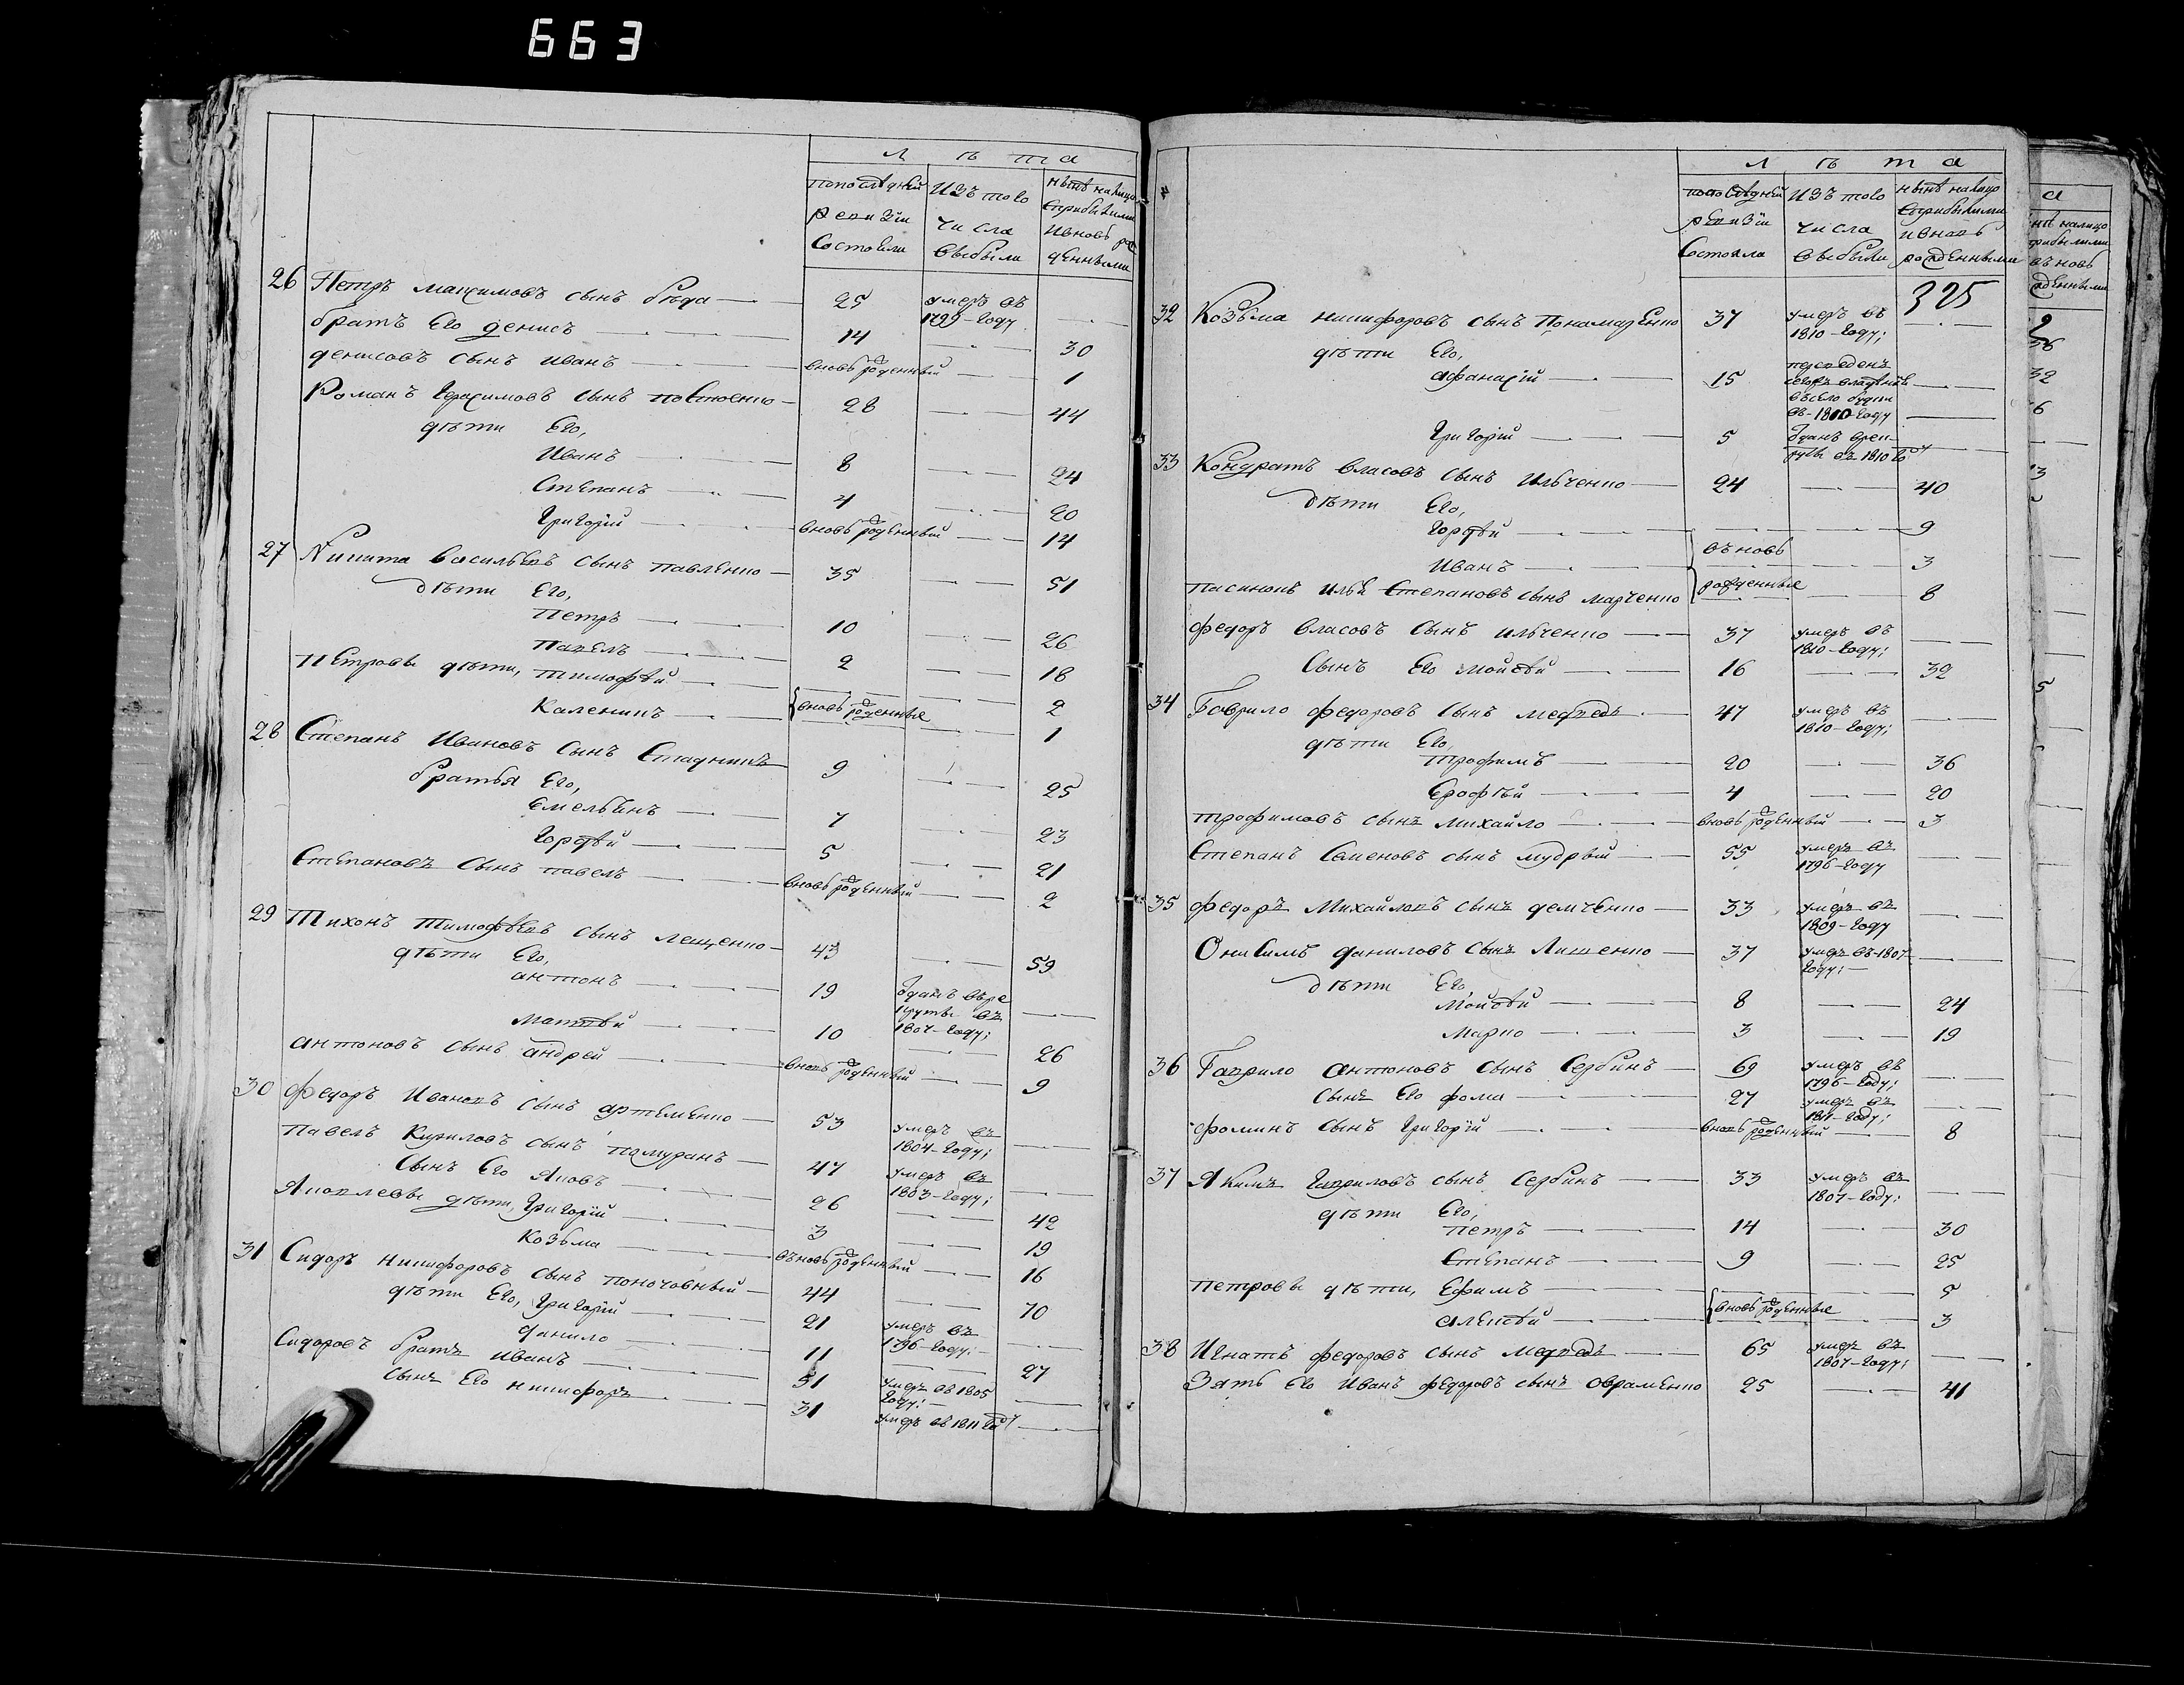 663
Лѣта
попоследней ревизии состояли
изъ того числа выбыли
ныне налицо сприбылыми ивновь рожденными
26 Петръ максимовъ сынъ бѣда 25 умеръ въ 1799-году
братъ Его денисъ 14 30
денисовъ сынъ иванъ вновь рожденный 1
Романъ Герасимовъ сынъ 28 44
дѣти Его,
Иванъ 8 24
Степанъ 4 20
Григорій вновь рожденный 14
27 Никита васильевъ сынъ павленко 35 51
дѣти Его,
Петръ 10 26
Павелъ 2 18
Петровы дѣти, тимофѣй 2
Каленикъ вновь рожденные 1
28 Степанъ Ивановъ сынъ Стадникъ 9 25
братья Его,
Емельянъ 7 23
Гордѣй 5 21
Степановъ сынъ павелъ вновь рожденный 2
29 Тихонъ Тимофѣевъ сынъ лещенко 43 59
дѣти Его,
антонъ 19 зданъ врекруты въ 1807-году;
Матвѣй 10 26
антоновъ сынъ андрей вновь рожденный 9
30 федоръ Ивановъ сынъ артеменко 53 умеръ въ 1804-году;
Павелъ Кириловъ сынъ 47 умеръ въ 1803-году;
Сынъ Его Яковъ 26 42
Яковлевы дѣти, Григорій 3 19
Козьма въновь рожденный 16
31 Сидоръ никифоровъ сынъ 44 70
дѣти Его, Григорій 21 умеръ въ 1796-году;
данило 11 27
Сидоровъ братъ иванъ 51 умеръ въ 1805 году;
Сынъ Его никифоръ 31 умеръ въ 1811 году
Лѣта
попоследней ревизіи состояло
изъ того числа выбыли
ныне налицо сприбылыми ивновь рожденными
325
32 Козьма никифоровъ сынъ Понамаренко 37 умеръ въ 1810-году;
дѣти Его,
афанасій 15 въ-1810-году
Григорій 5 зданъ врекруты въ 1810 году
33 Кондратъ власовъ сынъ Ильченко 24 40
дѣти Его,
Гордѣй 9
Иванъ въновь рожденные 3
пасинокъ илья Степановъ сынъ марченко 8
федоръ власовъ сынъ ильченко 37 умеръ въ 1810-году;
Сынъ Его мойсѣй 16 32
34 Гаврило федоровъ сынъ медведь 47 умеръ въ 1810-году;
дѣти Его,
трофимъ 20 36
Ерофѣй 4 20
трофимовъ сынъ михайло вновь рожденный 3
Степанъ Семеновъ сынъ мудрый 55 умеръ въ 1796-году
35 федоръ Михайловъ сынъ демченко 33 умеръ въ 1809-году
Онисимъ даниловъ сынъ 37 умеръ въ-1807-году;
дѣти Его
мойсѣй 8 24
марко 3 19
36 Гаврило антоновъ сынъ Сербинъ 69 умеръ въ 1796-году;
сынъ Его фома 27 умеръ въ 1811-году;
фоминъ сынъ Григорій вновь рожденный 8
37 Якимъ гавриловъ сынъ Сербинъ 33 умеръ въ 1807-году;
дѣти Его,
петръ 14 30
Степанъ 9 25
петровы дѣти, Ефимъ 5
алексѣй вновь рожденные 3
38 Игнатъ федоровъ сынъ медведь 65 умеръ въ 1807-году;
Зять Его Иванъ федоровъ сынъ овраменко 25 41